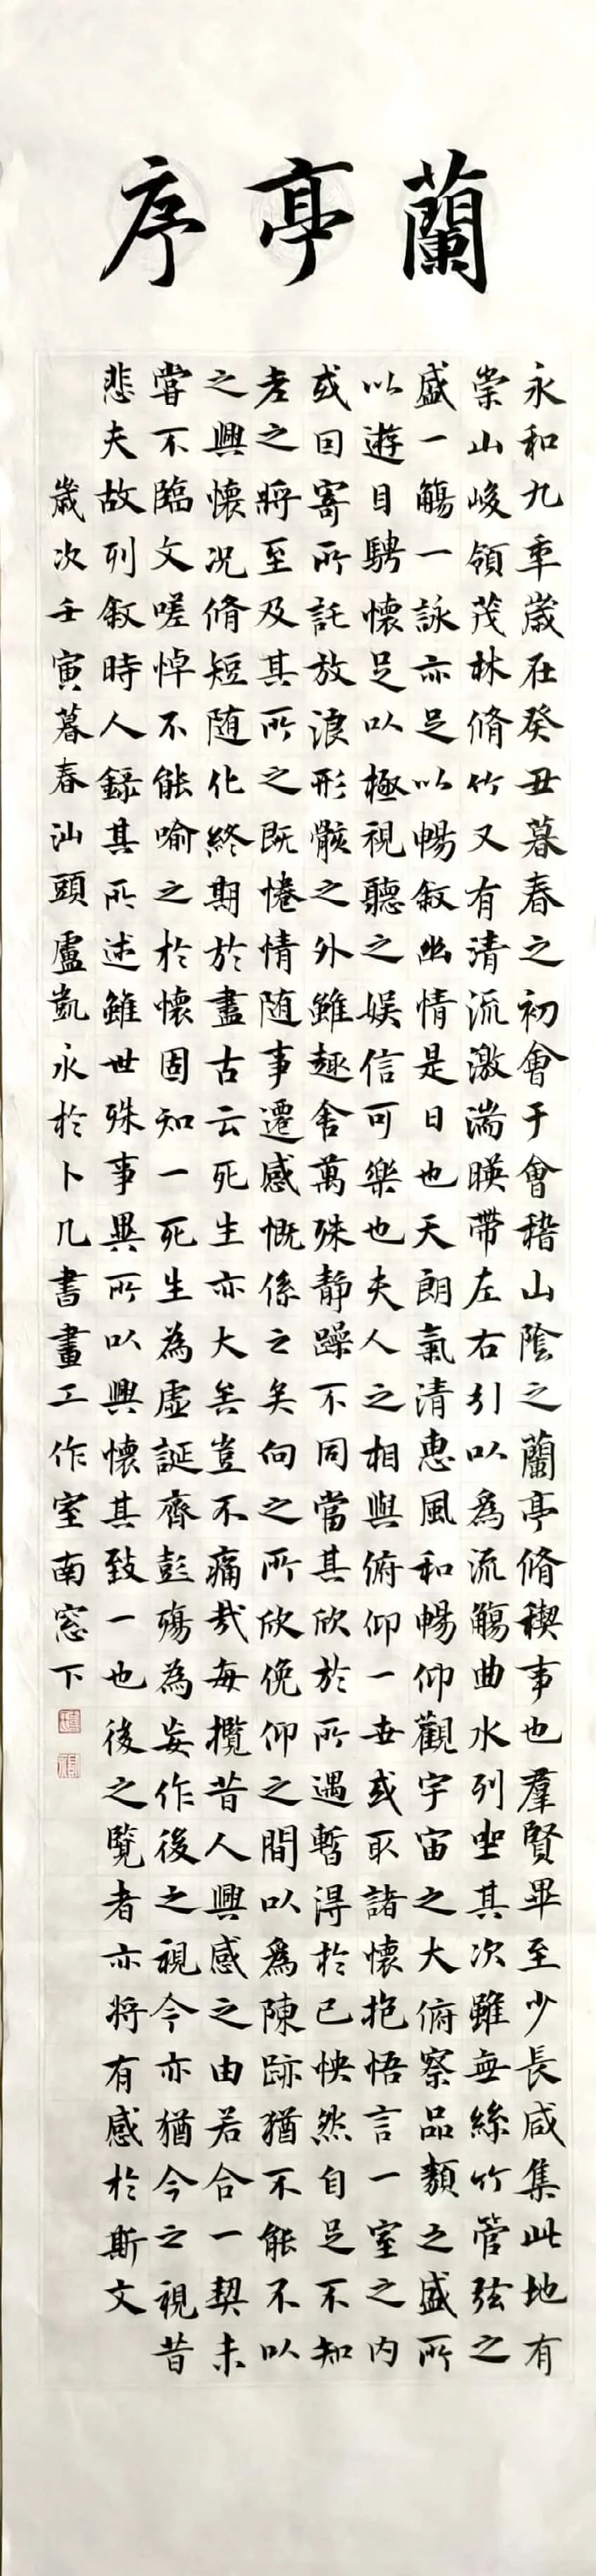 蘭亭序
永和九年歲在癸丑暮春之初會于會稽山陰之蘭亭脩稧事也羣賢畢至少長咸集此地有
崇山峻領茂林脩竹又有清流激湍暎帶左右引以為流觴曲水列坐其次雖無絲竹管弦之
盛一觴一詠亦足以暢敘幽情是日也天朗氣清惠風和暢仰觀宇宙之大俯察品類之盛所
以遊目騁懷足以極視聽之娛信可樂也夫人之相與俯仰一世或取諸懷抱悟言一室之內
或因寄所託放浪形骸之外雖趣舍萬殊靜躁不同當其欣於所遇暫得於己怏然自足不知
老之將至及其所之既惓情随事遷感慨係之矣向之所欣俛仰之間以為陳跡猶不能不以
之興懷况脩短随化終期於盡古云死生亦大矣豈不痛哉每攬昔人興感之由若合一契未
嘗不臨文嗟悼不能喻之於懷固知一死生為虛誕齊彭殤為妄作後之視今亦猶今之視昔
悲夫故列敘時人錄其所述雖世殊事異所以興懷其致一也後之覽者亦將有感於斯文
歲次壬寅暮春汕頭盧凱永於卜几書畫工作室南窓下